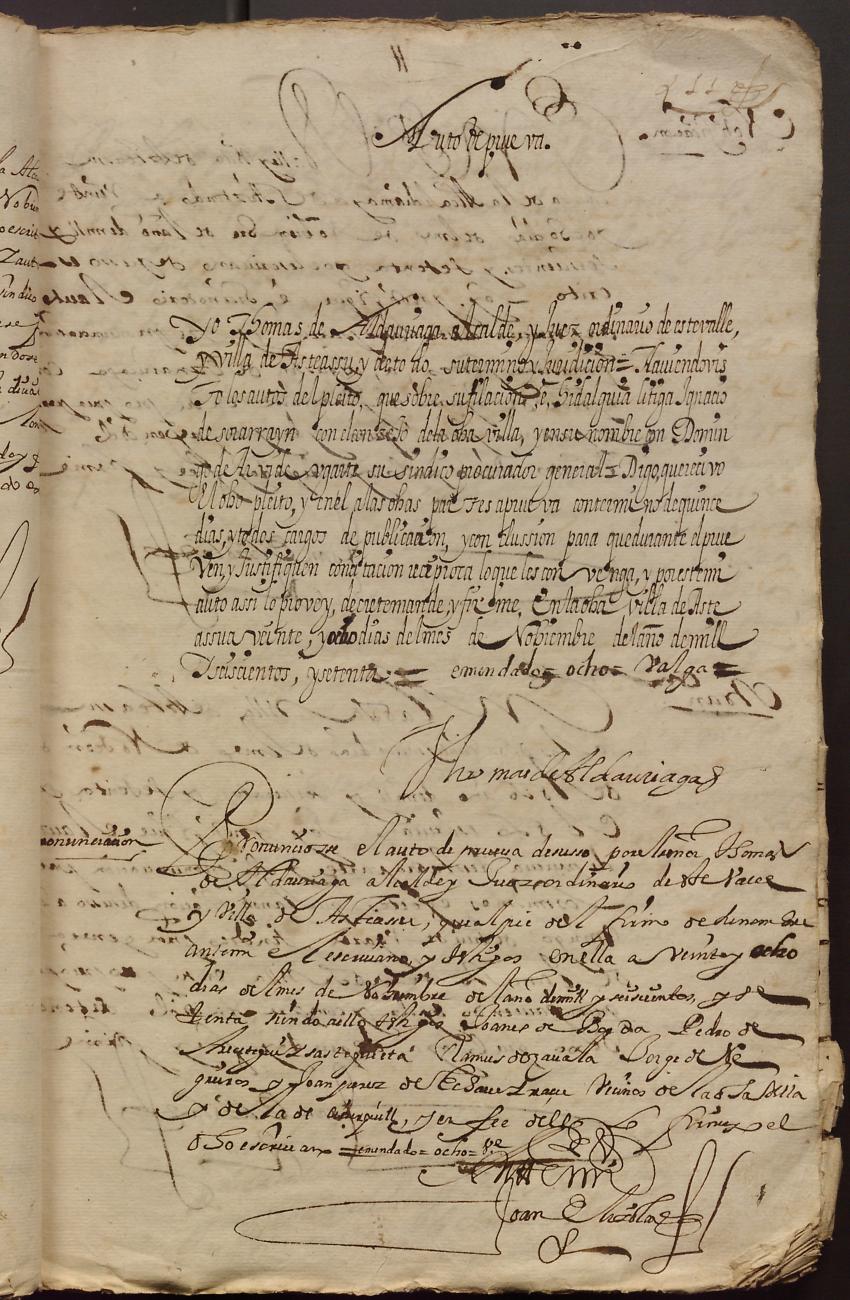 11
Auto de prueva.
Yo Thomas de Aldauriaga alcalde, y Juez ordinario de este valle,
y villa de Asteassu, y de todo su termino y Juridicion = Haviendo vis
to los autos del pleito, que sobre su filacion, e, hidalguia litiga Ignacio
de sorarrayn con el conzeso de la dha villa, y en su nombre con Domin
go de ugarte su sindico procurador general = Digo, que recivo
el dho pleito, y en el a las dhas partes a prueva con termino de quince
dias, y todos cargos de publicacion, y conclussion para que durante el prue
ven, y Justifiquen con citacion reciproca lo que les convenga, y por este mi
auto assi lo proveo, decrete mande, y firme, En la dha villa de Aste
assu a veinte, y ocho dias del mes de Nobiembre del año de mill
y seiscientos, y setenta = emendado = ocho = valga =
Thomas de Aldauriaga
Pronunciacion
Pronunciosse el auto de prueva desusso por el señor Thomas
de Aldauriaga alcalde y Juez ordinario de este valle
y villa de Asteassu, que al pie del firmo de su nombre
ante mi el escrivano, y testigos en ella a veinte y ocho
dias del mes de Nobiembre del año de mill y seiscientos, y se
tenta siendo a ello testigos Joanes de Pedro de
Ramus de zavala Jorge de
y Joan perez de vecinos de la dha villa
y de la de y en fee de ello firme yo el
dho escrivano = emendado = ocho = Ve
Ante mi
Joan de Elizalde